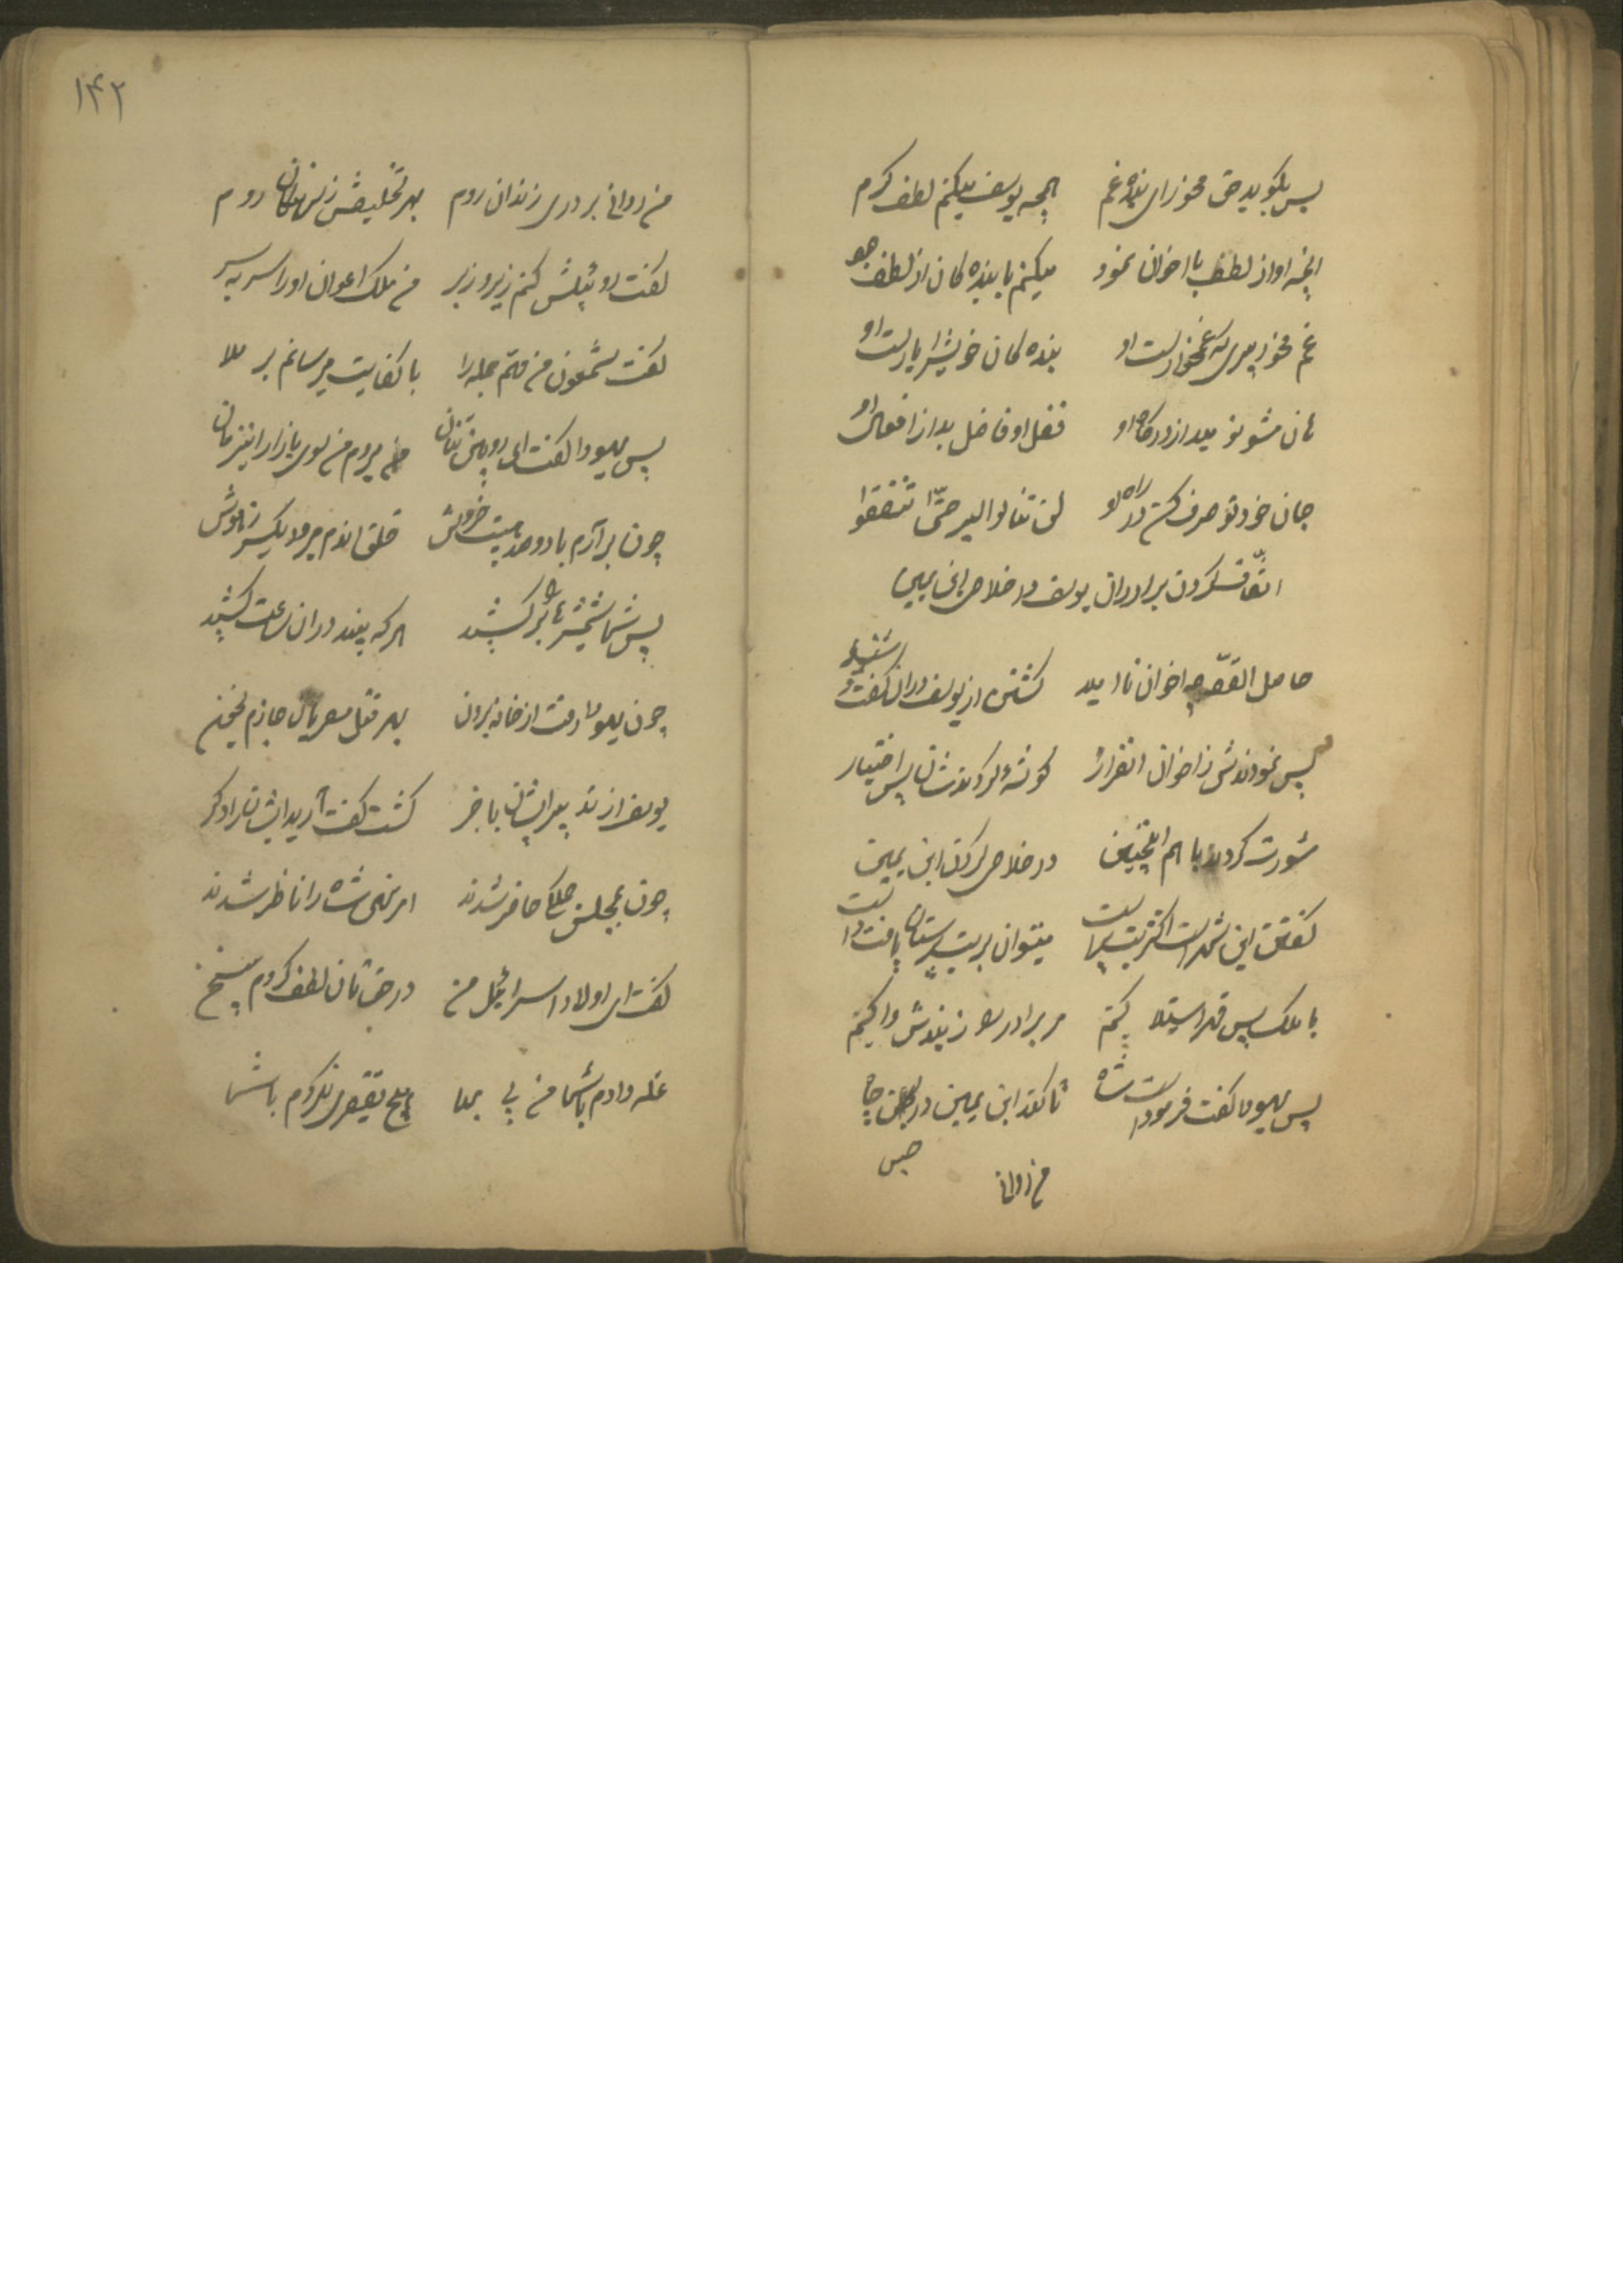 پس بگوید حق مخور ای بنده غم همچه یوسف میکنم لطف و کرم
آنچه او از لطف با اخوان نمود میکنم با بنده کان از لطف
غم مخور که غمخوارست او بنده کان خویش را یارست او
هان مشو نومید از درگاه او فضل او فاضل بد از افعال او
جان خود تو صرف کن در راه او لن تنالوا البر حتّی تنفقوا
اتّفاق کردن برادران یوسف در خلاص ابن یمین
حاصل القصّه چه اخوان ناامید گشتن از یوسف در آن گفت و شنید
پس نمودندش ز اخوان انفراد گوشهٔ کردندشان پس اختیار
مشورت کردند با هم اینچنین در خلاص کردن ابن یمین
گفتن این شهر است اکثر بت پرست میتوان بر بت پرستان یافت دست
با ملک پس قهر استیلا کنم مر برادر را ز بندش وا کنم
پس یهودا گفت فرمودست شاه تا کند ابن یمین در حبس جا
حبس
من روان
۱۴۲
من روان بر در زندان روم بهر تخلیصش روم
گفت روئیلش کنم زیر و زبر من ملک اعوان او را سر به سر
گفت شمعون من همّ جمله را با کفایت میرسانم بر ملا
پس یهودا گفت ای رویین تنان میروم من سوی بازار این زمان
چون برآرم با دو صد هیبت خروش خلق افتد یکسر ز هوش
پس شما شمشیرها را برکشید هر که بیند در آن ساعت کشید
چون یهودا رفت از خانه برون بهر قتل مصریان جازم
یوسف از تدبیر ایشان با خبر گشت گفت آرید ایشان را دگر
چون بمجلس جملگی حاضر شدند امر نهی شاه را ناظر شدند
گفت ای اولاد اسرائیل من در حق تان لطف کردم
غله دادم با شما من بی بها هیچ تقصیری نکردم با شما